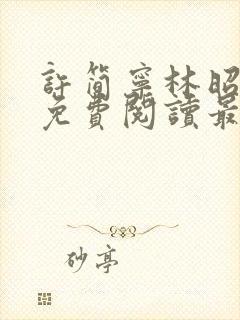 許簡寧林昭
免費閱讀最
砂亭